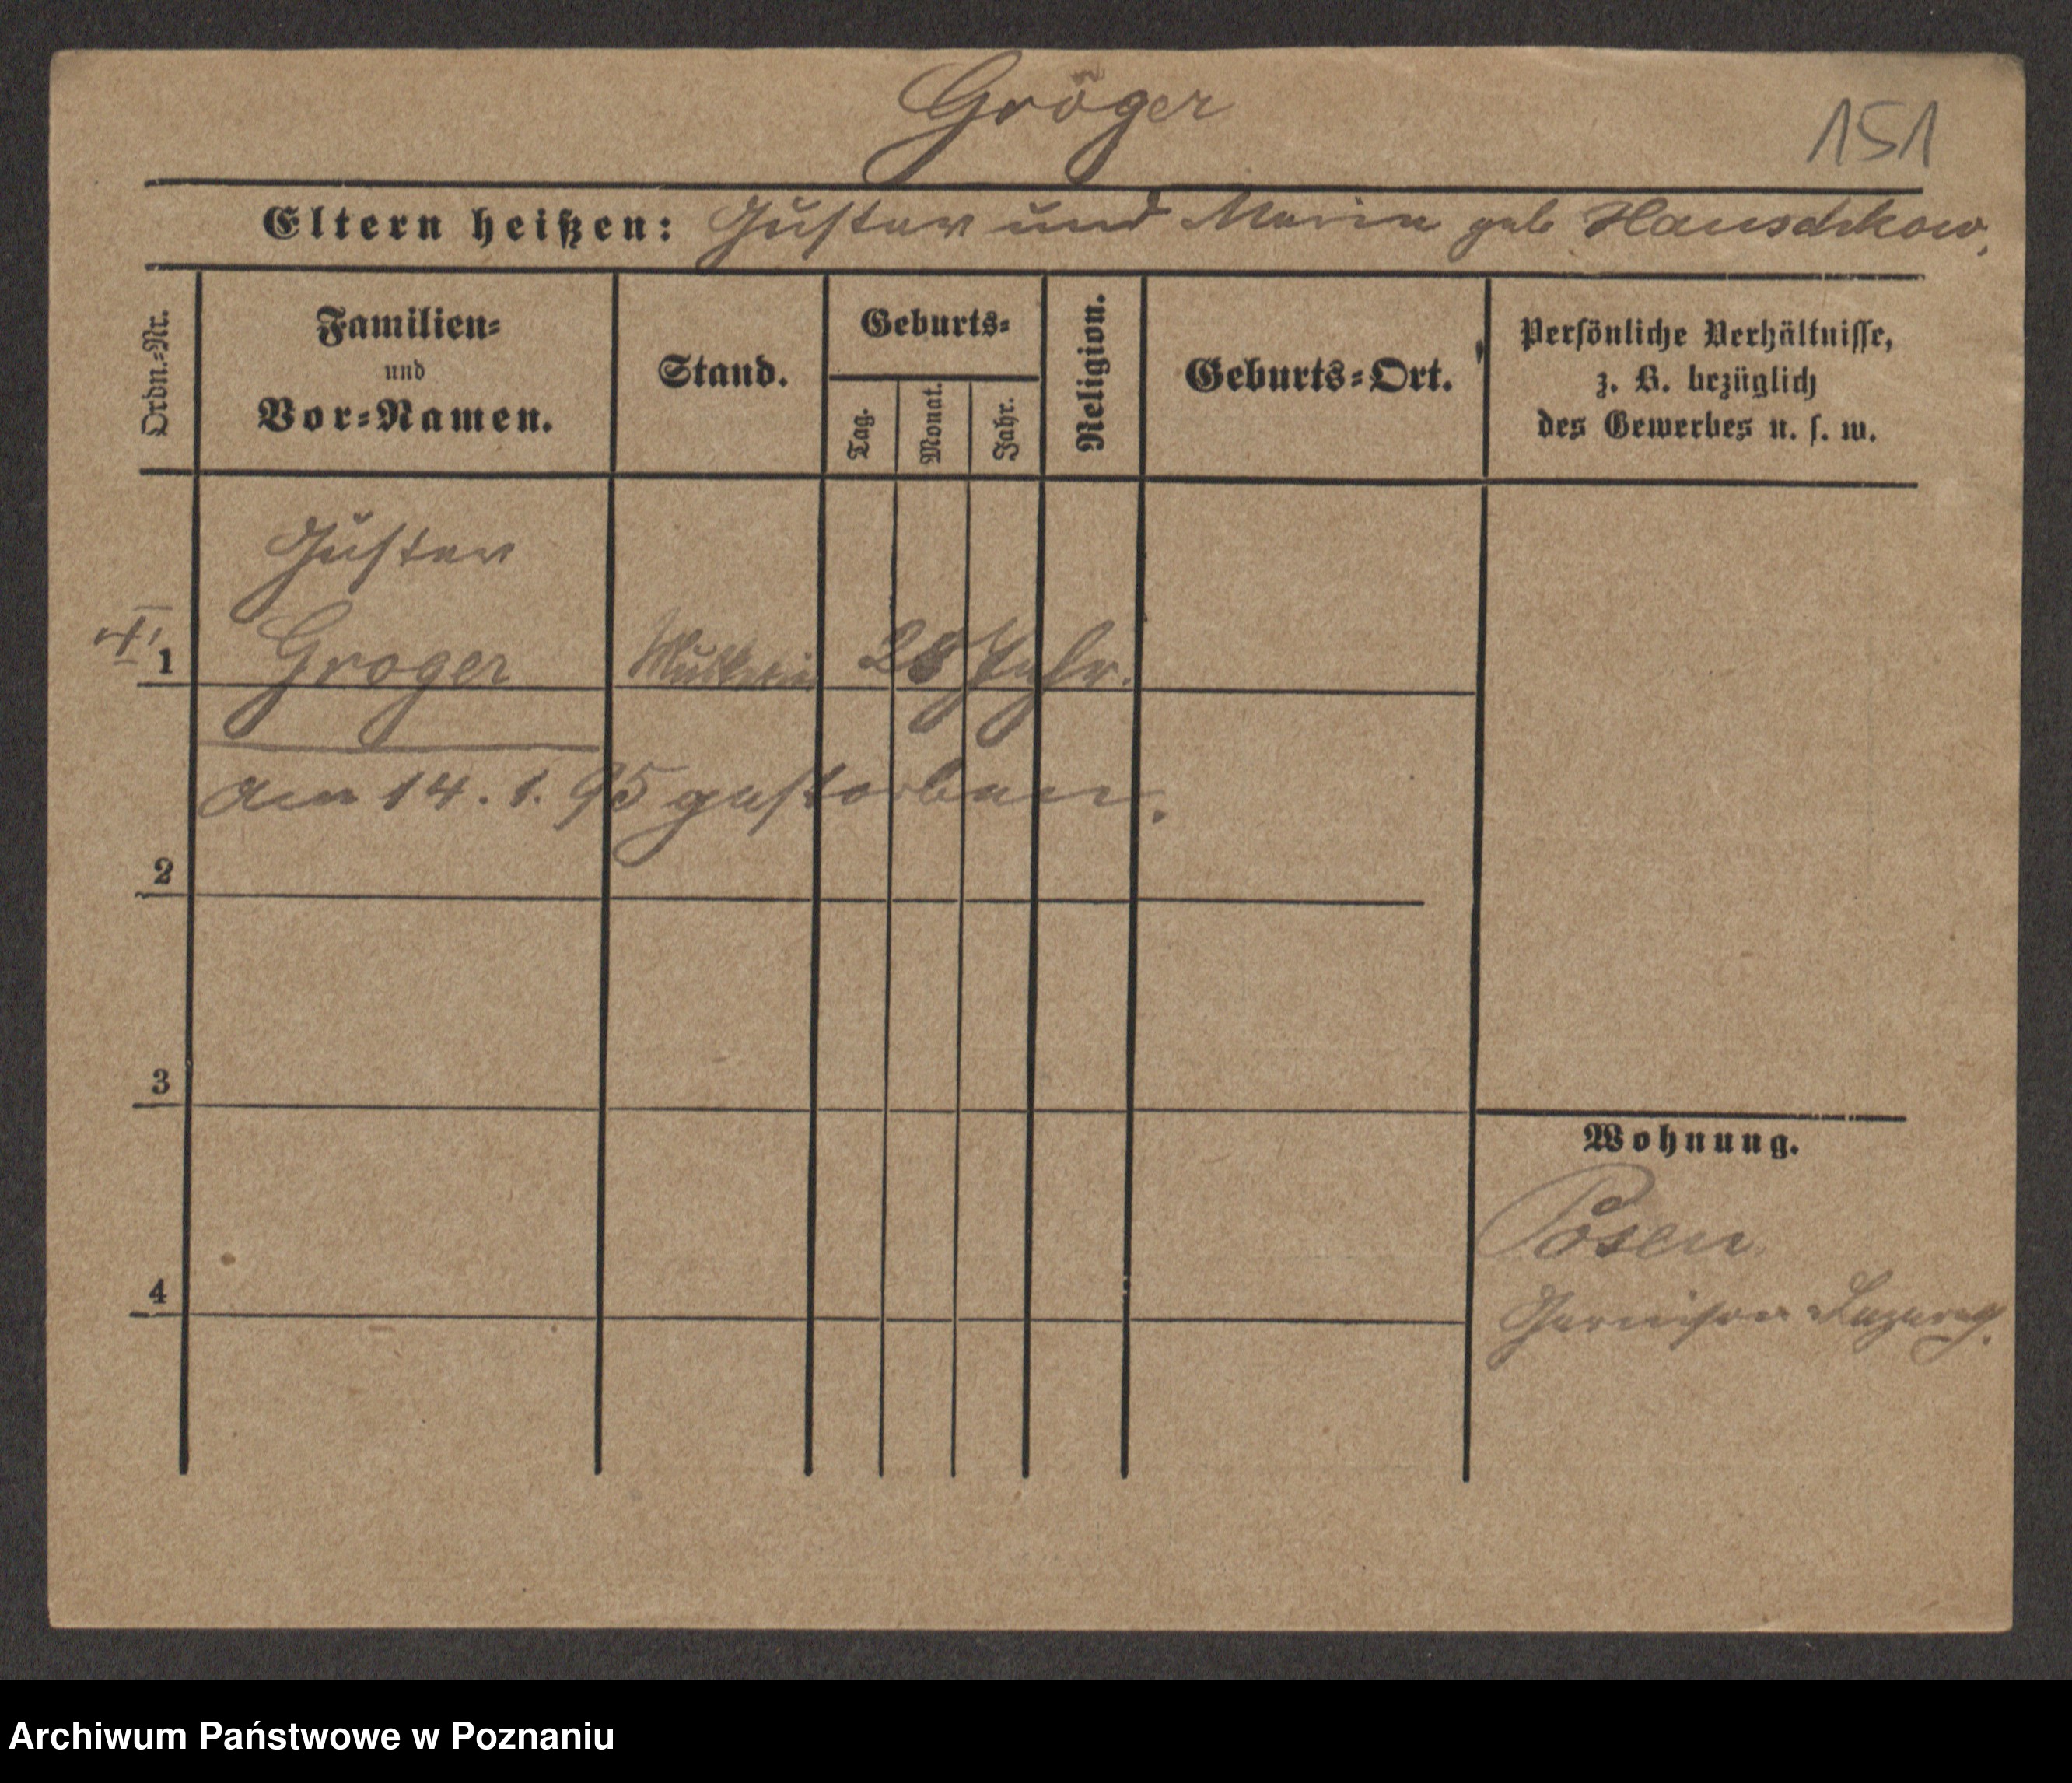 Gröger
151
Eltern heißen: Gustav und Maria geb Hauschkow,
Ordn.=Nr.
Familien=
und
Vor=Namen.
Stand.
Geburts=
Tag.
Monat.
Jahr.
Religion.
Geburts=Ort.
Persönliche Verhältnisse,
z. B. bezüglich
des Gewerbes u. s. w.
Gustav
1 Groger 28 Jahr.
am 14. 1. 95 gestorben.
2
3
4
Wohnung.
Posen
Garnison Lazareth.
Archiwum Państwowe w Poznaniu